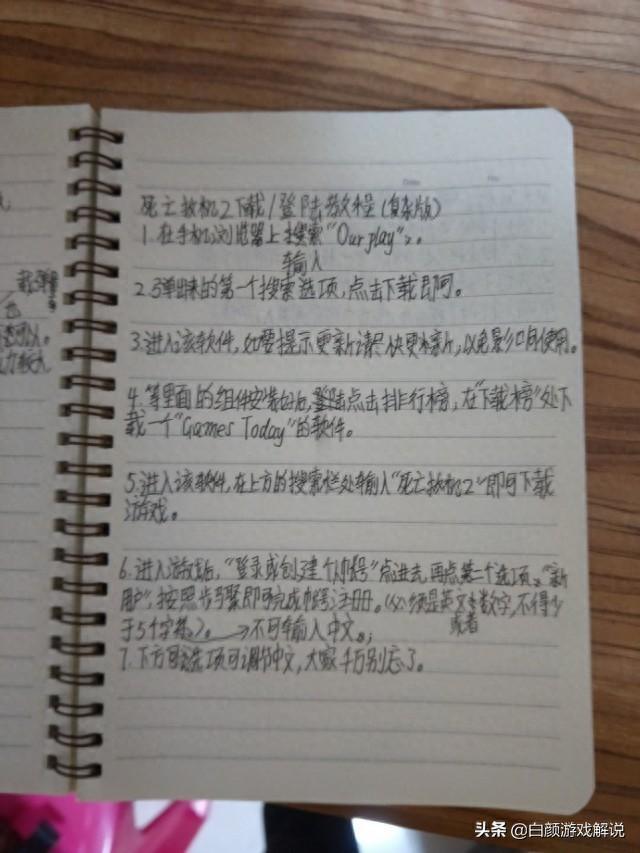 死亡扳机2下载/登陆教程(复杂版)
1.在手机浏览器上搜索"Ourplay"。
输入
2.弹出来的第一个搜索选项,点击下载即可。
3.进入该软件,如要提示更新请尽快更新,以免影响使用。
4.等里面的组件安装好后,登陆点击排行榜,在"下载榜"处下
载一个"Games Today"的软件。
5.进入该软件,在上方的搜索栏处输入"死亡扳机2"即可下载
游戏。
6.进入游戏后,"登录或创建个帐号"点进去,再点第二个选项"新
用户",按照步骤即可完成帐号注册。(必须是英文数字,不得少
或者
于5个字符)。→不可输入中文。;
7.下方可选项可调节中文,大家千万别忘了。
载弹
头条 @白颜游戏解说